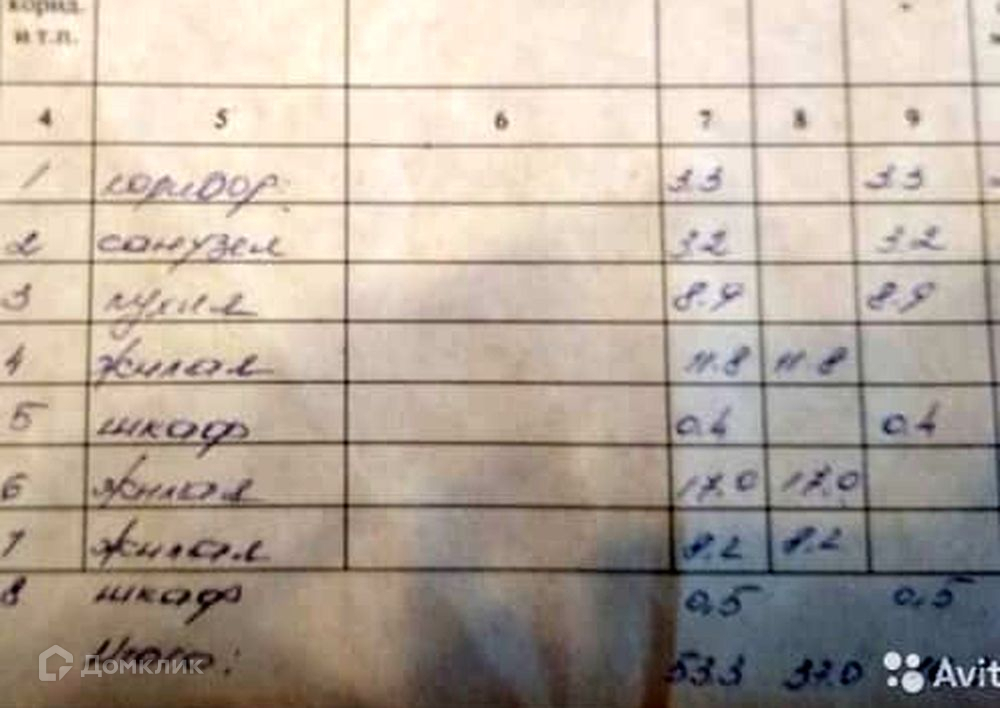 корид.
и т.п.
4 5 6 7 8 9
1 коридор. 3.3 3.3
2 санузел 3.2 3.2
3 кухня 8.9 8.9
4 жилая 11.8 11.8
5 шкаф 0.4 0.4
6 жилая 17.0 17.0
7 жилая 8.2 8.2
8 шкаф 0.5 0.5
Итого: 53.3 37.0
Домклик
Avit